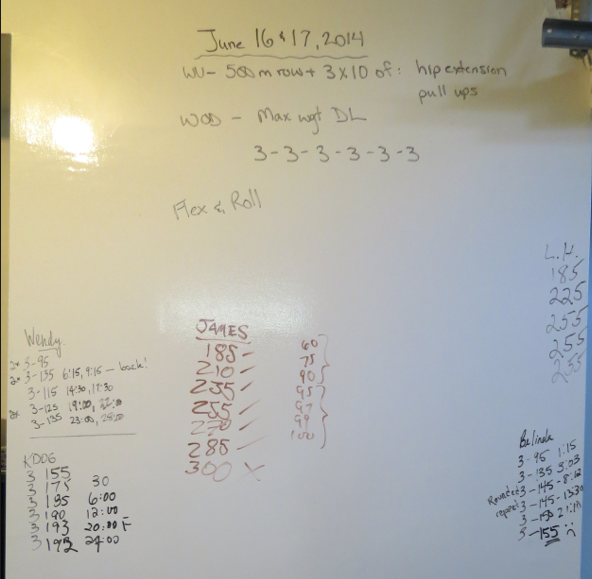 June 16 & 17, 2014
WU - 500 m row + 3 x 10 of: hip extension
pull ups
WOD - Max wgt DL
3-3-3-3-3-3
Flex & Roll
L.H.
185
225
255
255
255
Wendy
2x 3-95
2x 3-135 6:15, 9:15 - back!
3-115 14:30, 17:30
2x 3-125 19:00, 22:00
3-135 23:00,
JAMES
185 -
210 -
235 -
255 -
270 -
285 -
300 x
60
75
90
95
97
99
100
KDOG
3 155
3 175 30
5 185 6:00
3 190 12:00
3 193 20:00 F
3 192 24:00
Belinda
3-95 1:15
3-135 5:03
Rounded 3-145-8:12
3-145-13:30
3-
5-155 :(